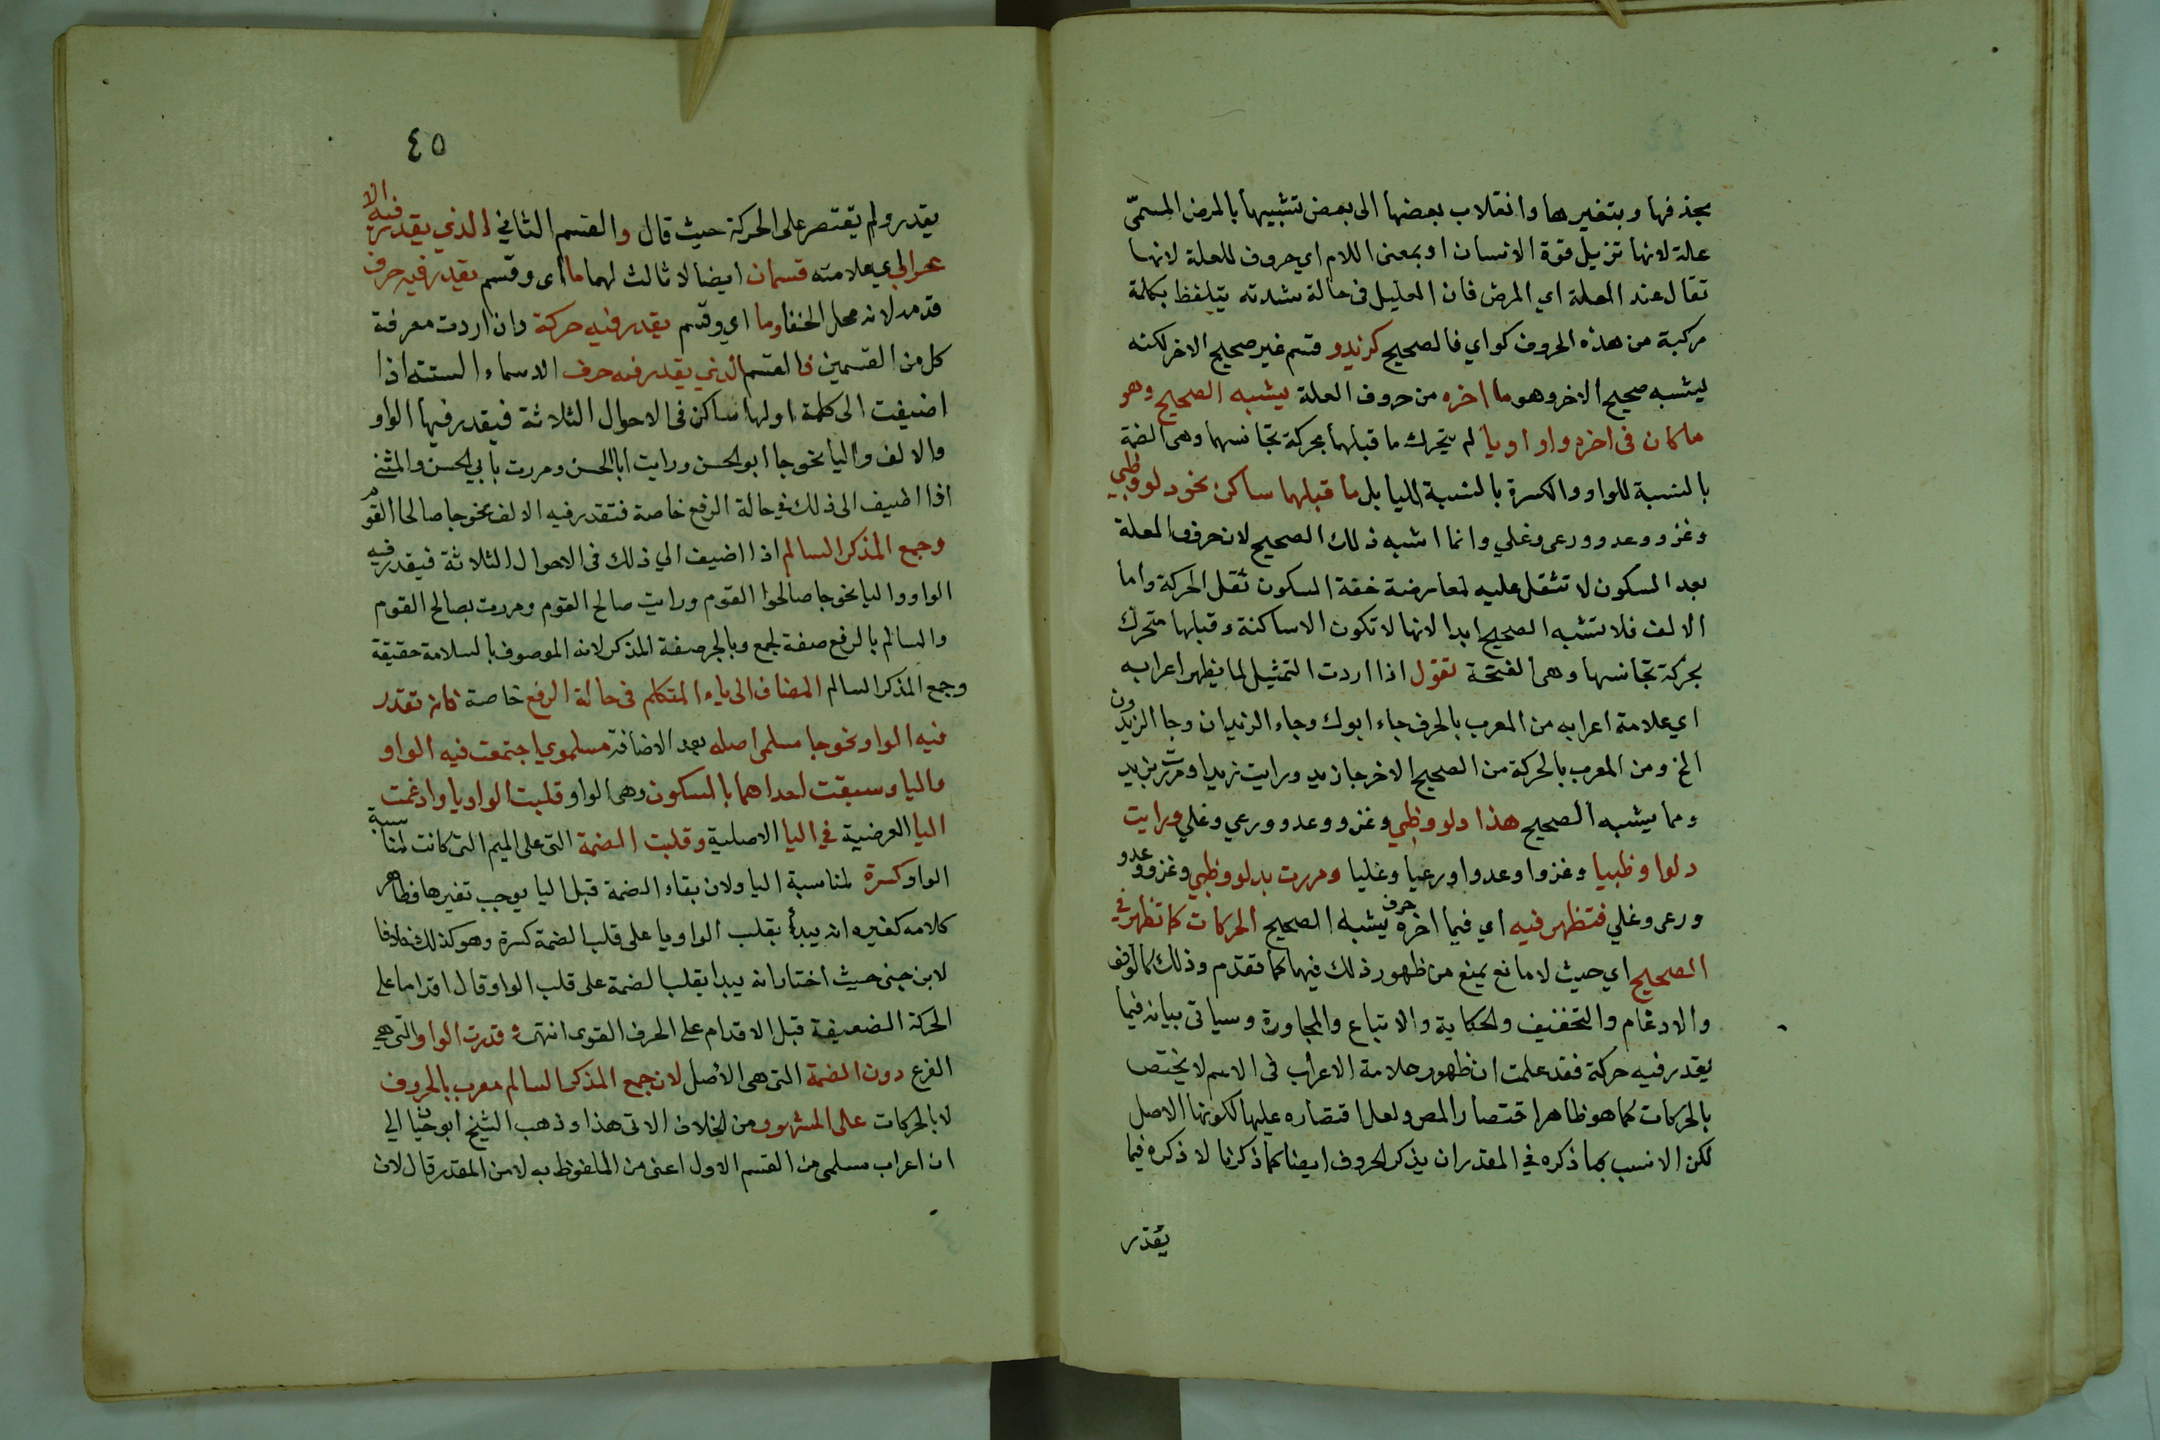 بحذفها وبتغيرها وانقلاب بعضها الى بعض تشبيها بالمرض المسمّى
علة لانها تزيل قوة الانسان او بمعنى اللام اي حروف للعلة لانها
تقال عند العلة اي المرض فان العليل فى حالة شدته يتلفظ بكلمة
مركبة من هذه الحروف كواي فالصحيح كزيد و قسم غير صحيح الاخر لكنه
يشبه صحيح الاخر وهو ما اخره من حروف العلة يشبه الصحيح وهو
ما كان فى اخره واو او يا لم يتحرك ما قبلهما بحركة تجانسهما وهى الضمة
بالنسبة للواو والكسرة بالنسبة لليا بل ما قبلهما ساكن نحو دلو وظبي
وغزو وعدو ورعى وغلي وانما اشبه ذلك الصحيح لان حرف العلة
بعد السكون لا تثقل عليه لمعارضة خفة السكون ثقل الحركة واما
الالف فلا تشبه الصحيح ابدا لانها لا تكون الا ساكنة وقبلها متحرك
بحركة تجانسها وهى الفتحة تقول اذا اردت التمثيل لما يظهر اعرابه
اي علامة اعرابه من المعرب بالحرف جاء ابوك وجاء الزيدان وجا الزيدون
الخ ومن المعرب بالحركة من الصحيح الاخر جا زيد ورايت زيدا ومررت بزيد
ومما يشبه الصحيح هذا دلو وظبي وغزو وعدو ورعي وغلي ورايت
دلوا وظبيا وغزوا وعدوا ورعيا وغليا ومررت بدلو وظبي وغزو وعدو
ورعى وغلي فتظهر فيه اي فيما اخره حرف يشبه الصحيح الحركات كما تظهر في
الصحيح اي حيث لا مانع يمنع من ظهور ذلك فيهما كما تقدم وذلك كالوقف
والادغام والتخفيف والحكاية والاتباع والمجاورة وسياتى بيانه فيما
يقدر فيه حركة فقد علمت ان ظهور علامة الاعراب فى الاسم لا يختص
بالحركات كما هو ظاهر اختصار المص ولعل اقتصاره عليها لكونها الاصل
لكن الانسب بما ذكره في المقدر ان يذكر الحروف ايضا كما ذكرنا لا ذكره فيما
يقدر
٤٥
يقدر ولم يقتصر على الحركة حيث قال والقسم الثاني الذي يقدر فيه الا
عراب اي علامته قسمان ايضا لا ثالث لهما ما اى وقسم يقدر فيه حرف
قدمه لانه محل الخفا وما اي وقسم يقدر فيه حركة وان اردت معرفة
كل من القسمين فالقسم الذي يقدر فيه حرف الاسماء الستة اذا
اضيفت الى كلمة اولها ساكن فى الاحوال الثلاثة فيقدر فيها الواو
والالف واليا نحو جا ابو الحسن ورايت ابا الحسن ومررت بأبي الحسن والمثنى
اذا اضيف الى ذلك في حالة الرفع خاصة فتقدر فيه الالف نحو جا صالحا القوم
وجمع المذكر السالم اذا اضيف الي ذلك فى الاحوال الثلاثة فيقدر فيه
الواو واليا نحو جا صالحوا القوم ورايت صالح القوم ومررت بصالح القوم
والسالم بالرفع صفة لجمع وبالجر صفة المذكر لانه الموصوف بالسلامة حقيقة
وجمع المذكر السالم المضاف الى ياء المتكلم فى حالة الرفع خاصة فانه تقدر
فيه الواو نحو جا مسلمي اصله بعد الاضافة مسلموي اجتمعت فيه الواو
واليا وسبقت احداهما بالسكون وهى الواو وقلبت الواو يا وادغمت
اليا العرضية في اليا الاصلية وقلبت الضمة التى على الميم التى كانت لمناسبة
الواو كسرة لمناسبة اليا ولان بقاء الضمة قبل اليا يوجب تغيرها وظاهر
كلامه كغيره انه يبدأ بقلب الواو يا على قلب الضمة كسرة وهو كذلك خلافا
لابن جنى حيث اختار انه يبدا بقلب الضمة على قلب الواو وقال اقداما على
الحركة الضعيفة قبل الاقدام على الحرف القوى انتهى قدرت الواو التى هي
الفرع دون الضمة التى هى الأصل لان جمع المذكر السالم معرب بالحروف
لا بالحركات على المشهور من الخلاف الاتى هذا وذهب الشيخ ابو حيا الي
ان اعراب مسلمى من القسم الاول اعنى من الملفوظ به لا من المقدر قال لان